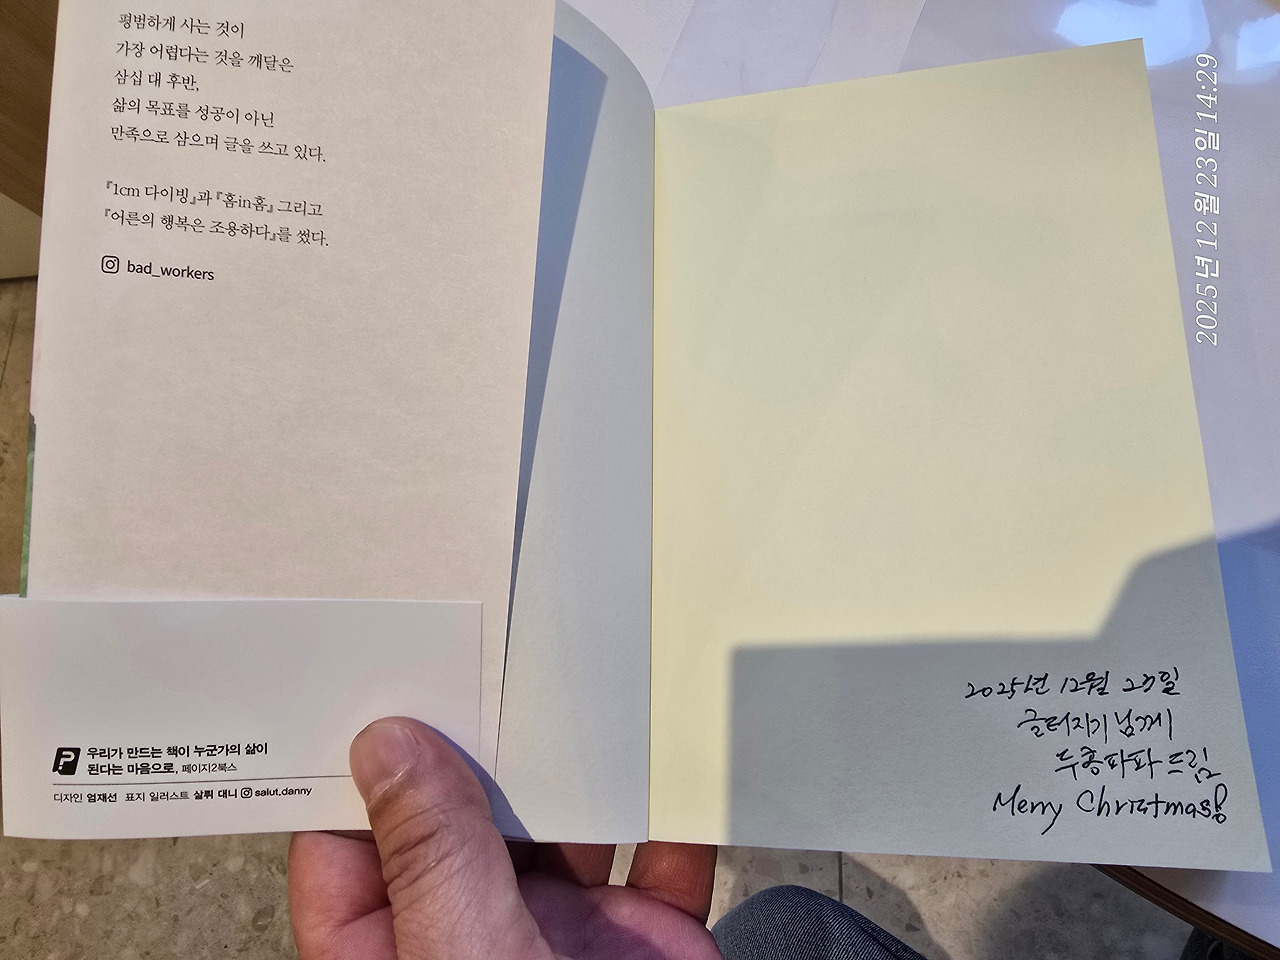 평범하게 사는 것이
가장 어렵다는 것을 깨달은
삼십 대 후반,
삶의 목표를 성공이 아닌
만족으로 삼으며 글을 쓰고 있다.
『1cm 다이빙』과 『홈in홈』 그리고
『어른의 행복은 조용하다』를 썼다.
bad_workers
우리가 만드는 책이 누군가의 삶이
된다는 마음으로, 페이지2북스
디자인 엄재선 표지 일러스트 살뤼 대니 salut.danny
2025년 12월 23일
글터지기님께
두콩파파 드림
Merry Christmas!
2025년 12월 23일 14:29